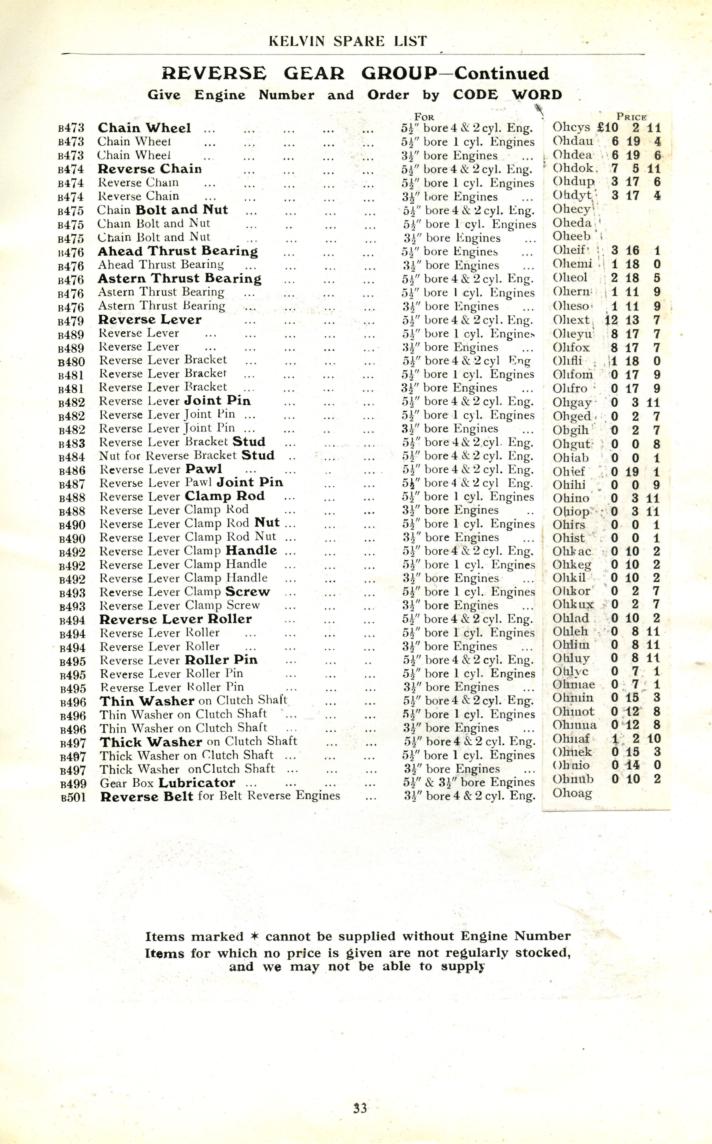 KELVIN SPARE LIST
REVERSE GEAR GROUP—Continued
Give Engine Number and Order by CODE WORD
FOR PRICE
B473 Chain Wheel ... ... ... ... ... 5½" bore 4 & 2 cyl. Eng. Ohcys £10 2 11
B473 Chain Wheel ... ... ... ... ... 5½" bore 1 cyl. Engines Ohdau 6 19 4
B473 Chain Wheel ... ... ... ... ... 3½" bore Engines ... Ohdea 6 19 6
B474 Reverse Chain ... ... ... ... 5½" bore 4 & 2 cyl. Eng. Ohdok 7 5 11
B474 Reverse Chain ... ... ... ... ... 5½" bore 1 cyl. Engines Ohdup 3 17 6
B474 Reverse Chain ... ... ... ... ... 3½" bore Engines ... Ohdyt 3 17 4
B475 Chain Bolt and Nut ... ... ... ... 5½" bore 4 & 2 cyl. Eng. Ohecy
B475 Chain Bolt and Nut ... ... ... ... 5½" bore 1 cyl. Engines Oheda
B475 Chain Bolt and Nut ... ... ... ... 3½" bore Engines ... Oheeb
B476 Ahead Thrust Bearing ... ... ... 5½" bore Engines ... Oheif 3 16 1
B476 Ahead Thrust Bearing ... ... ... ... 3½" bore Engines ... Ohemi 1 18 0
B476 Astern Thrust Bearing ... ... ... 5½" bore 4 & 2 cyl. Eng. Oheol 2 18 5
B476 Astern Thrust Bearing ... ... ... ... 5½" bore 1 cyl. Engines Ohern 1 11 9
B476 Astern Thrust Bearing ... ... ... ... 3½" bore Engines ... Oheso 1 11 9
B479 Reverse Lever ... ... ... ... 5½" bore 4 & 2 cyl. Eng. Ohext 12 13 7
B489 Reverse Lever ... ... ... ... ... 5½" bore 1 cyl. Engines Oheyu 8 17 7
B489 Reverse Lever ... ... ... ... ... 3½" bore Engines ... Ohfox 8 17 7
B480 Reverse Lever Bracket ... ... ... ... 5½" bore 4 & 2 cyl Eng Ohfli 1 18 0
B481 Reverse Lever Bracket ... ... ... ... 5½" bore 1 cyl. Engines Ohfom 0 17 9
B481 Reverse Lever Bracket ... ... ... ... 3½" bore Engines ... Ohfro 0 17 9
B482 Reverse Lever Joint Pin ... ... ... 5½" bore 4 & 2 cyl. Eng. Ohgay 0 3 11
B482 Reverse Lever Joint Pin ... ... ... ... 5½" bore 1 cyl. Engines Ohged 0 2 7
B482 Reverse Lever Joint Pin ... ... .. ... 3½" bore Engines ... Obgih 0 2 7
B483 Reverse Lever Bracket Stud ... ... ... 5½" bore 4 & 2 cyl. Eng. Ohgut 0 0 8
B484 Nut for Reverse Bracket Stud .. ... ... 5½" bore 4 & 2 cyl. Eng. Ohiab 0 0 1
B486 Reverse Lever Pawl ... ... .. ... 5½" bore 4 & 2 cyl. Eng. Ohief 0 19 1
B487 Reverse Lever Pawl Joint Pin ... ... 5½" bore 4 & 2 cyl Eng. Ohihi 0 0 9
B488 Reverse Lever Clamp Rod ... ... ... 5½" bore 1 cyl. Engines Ohino 0 3 11
B488 Reverse Lever Clamp Rod ... ... ... 3½" bore Engines .. Ohiop 0 3 11
B490 Reverse Lever Clamp Rod Nut ... ... ... 5½" bore 1 cyl. Engines Ohirs 0 0 1
B490 Reverse Lever Clamp Rod Nut ... ... ... 3½" bore Engines ... Ohist 0 0 1
B492 Reverse Lever Clamp Handle ... ... ... 5½" bore 4 & 2 cyl. Eng. Ohkac 0 10 2
B492 Reverse Lever Clamp Handle ... ... ... 5½" bore 1 cyl. Engines Ohkeg 0 10 2
B492 Reverse Lever Clamp Handle ... ... ... 3½" bore Engines ... Ohkil 0 10 2
B493 Reverse Lever Clamp Screw ... ... ... 5½" bore 1 cyl. Engines Ohkor 0 2 7
B493 Reverse Lever Clamp Screw ... ... ... 3½" bore Engines ... Ohkux 0 2 7
B494 Reverse Lever Roller ... ... ... 5½" bore 4 & 2 cyl. Eng. Ohlad 0 10 2
B494 Reverse Lever Roller ... ... ... ... 5½" bore 1 cyl. Engines Ohleh 0 8 11
B494 Reverse Lever Roller ... ... ... ... 3½" bore Engines ... Ohlim 0 8 11
B495 Reverse Lever Roller Pin ... ... .. 5½" bore 4 & 2 cyl. Eng. Ohluy 0 8 11
B495 Reverse Lever Roller Pin ... ... ... 5½" bore 1 cyl. Engines Ohlyc 0 7 1
B495 Reverse Lever Roller Pin ... ... ... 3½" bore Engines ... Ohmae 0 7 1
B496 Thin Washer on Clutch Shaft ... ... ... 5½" bore 4 & 2 cyl. Eng. Ohmin 0 15 3
B496 Thin Washer on Clutch Shaft ... ... ... 5½" bore 1 cyl. Engines Ohmot 0 12 8
B496 Thin Washer on Clutch Shaft ... ... ... 3½" bore Engines ... Ohmua 0 12 8
B497 Thick Washer on Clutch Shaft ... ... 5½" bore 4 & 2 cyl. Eng. Ohnaf 1 2 10
B497 Thick Washer on Clutch Shaft ... ... ... 5½" bore 1 cyl. Engines Ohnek 0 15 3
B497 Thick Washer onClutch Shaft ... ... ... 3½" bore Engines ... Ohnio 0 14 0
B499 Gear Box Lubricator ... ... ... ... 5½" & 3½" bore Engines Ohnub 0 10 2
B501 Reverse Belt for Belt Reverse Engines ... 3½" bore 4 & 2 cyl. Eng. Ohoag
Items marked * cannot be supplied without Engine Number
Items for which no price is given are not regularly stocked,
and we may not be able to supply
33